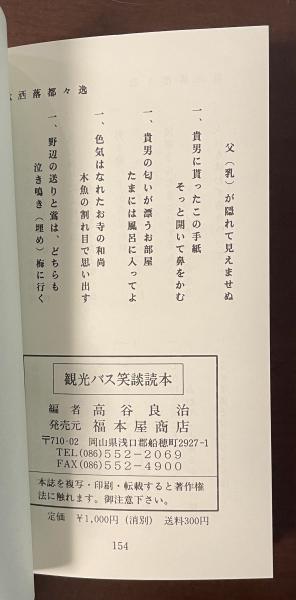 父（乳）が隠れて見えませぬ
一、貴男に貰ったこの手紙
そっと開いて鼻をかむ
一、貴男の匂いが漂うお部屋
たまには風呂に入ってよ
一、色気はなれたお寺の和尚
木魚の割れ目で思い出す
一、野辺の送りと鶯は、どちらも
泣き鳴き（埋め）梅に行く
逸々都落洒
観光バス笑談読本
編者 高谷良治
発売元 福本屋商店
〒710-02 岡山県浅口郡船穂町2927-1
TEL(086)552-2069
FAX(086)552-4900
本誌を複写・印刷・転載すると著作権
法に触れます。御注意下さい。
定価 ¥1,000円（消別） 送料300円
154